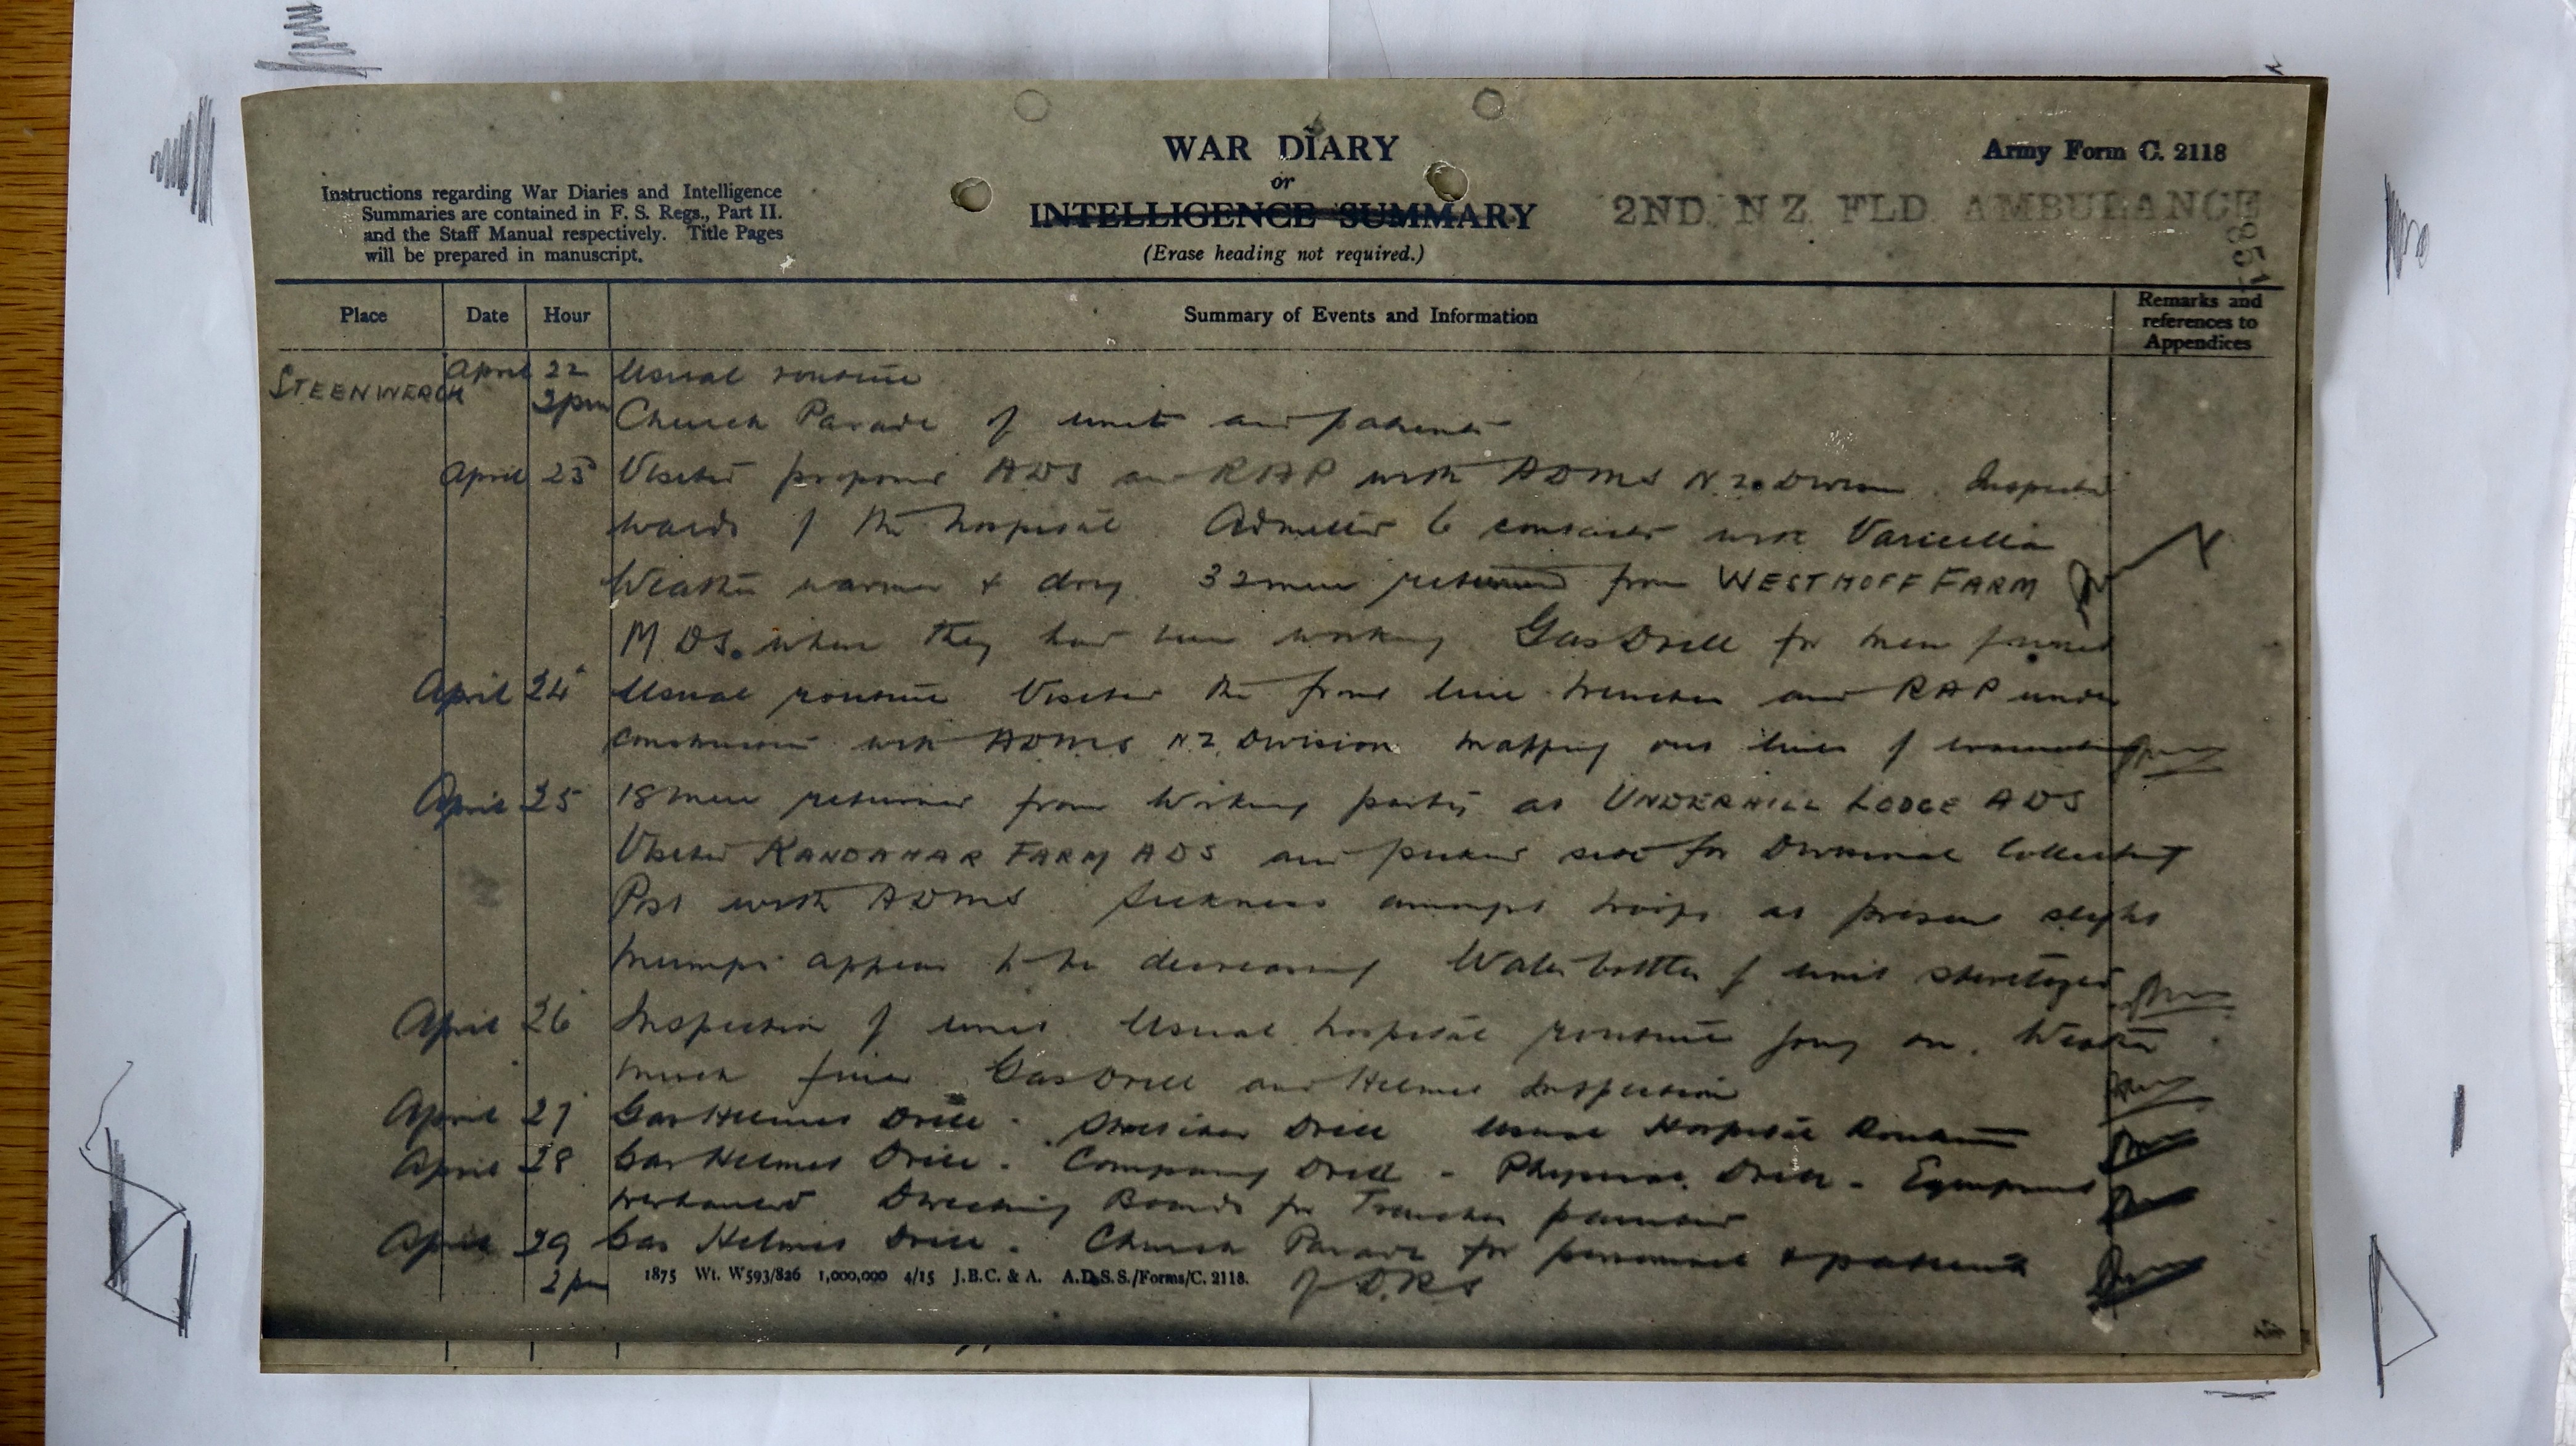 WAR DIARY
or
INTELLIGENCE SUMMARY
(Erase heading not required.)
Army Form C. 2118
2ND. N Z. FLD. AMBULANCE
851
Instructions regarding War Diaries and Intelligence
Summaries are contained in F. S. Regs., Part II.
and the Staff Manual respectively. Title Pages
will be prepared in manuscript.
Place Date Hour Summary of Events and Information Remarks and references to Appendices
STEENWERCK April 22 Usual routine
2pm Church Parade of unit and patients
April 23 Visited proposed ADS and RAP with ADMS N.Z. Division. Inspected
wards of the hospital. Admitted 6 contacts with Varicella
Weather warmer & dry. 32 men returned from WESTHOFF FARM
M DS. where they had been working Gas Drill for men
April 24 Usual routine Visited the front line trenches and RAP under
construction with ADMS N.Z. Division mapping out lines of evacuation
April 25 18 men returned from Working party at UNDERHILL LODGE ADS
Visited KANDAHAR FARM ADS and picked site for Divisional Collecting
Post with ADMS. Sickness amongst troops at present slight
Mumps appear to be decreasing Water bottles of unit sterilized
April 26 Inspection of unit. Usual hospital routine going on. Weather
much finer Gas Drill and Helmet Inspection
April 27 Gas Helmet Drill. Stretcher Drill Usual Hospital Routine
April 28 Gas Helmet Drill. Company Drill - Physical Drill - Equipment
overhauled Directing Boards for Trenches painted
April 29 Gas Helmet Drill. Church Parade for personnel & patients
2 pm of D.R.S
1875 Wt. W593/826 1,000,000 4/15 J.B.C. & A. A.D.S.S./Forms/C. 2118.